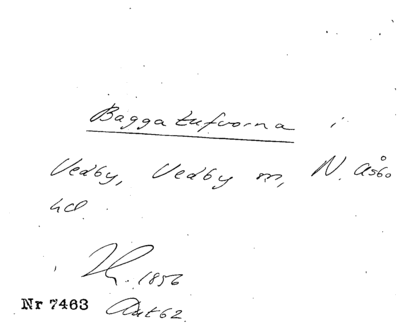 Baggatufvorna i
Vedby, Vedby sn, N. Åsbo
hd
1856
Nr 7463